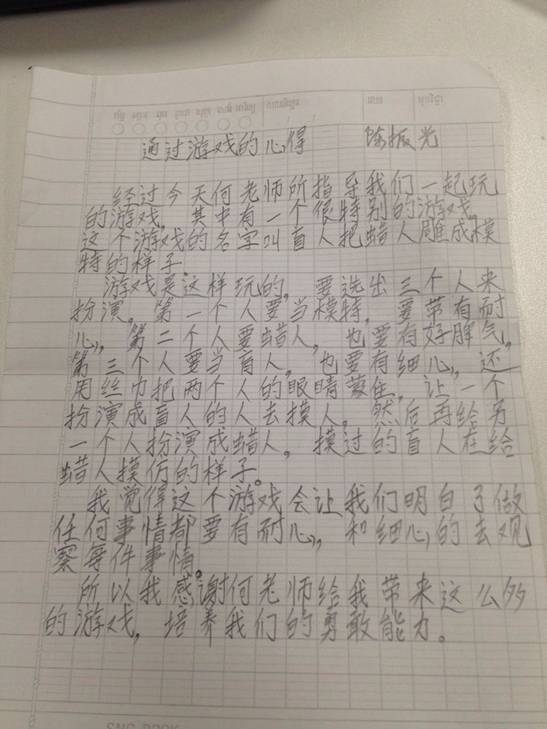 通过游戏的心得 陈振光
经过今天何老师所指导我们一起玩
的游戏。其中有一个很特别的游戏,
这个游戏的名字叫盲人把蜡人雕成模
特的样子。
游戏是这样玩的,要选出三个人来
扮演。第一个人要当模特,要带有耐
心,第二个人要蜡人,也要有好脾气,
第三个人要当盲人,也要有细心,还
用丝巾把两个人的眼睛蒙住,让一个
扮演成盲人的人去摸人。然后再给另
一个人扮演成蜡人,摸过的盲人在给
蜡人摸仿的样子。
我觉得这个游戏会让我们明白了做
任何事情都要有耐心,和细心的去观
察每件事情。
所以我感谢何老师给我带来这么多
的游戏,培养我们的勇敢能力。